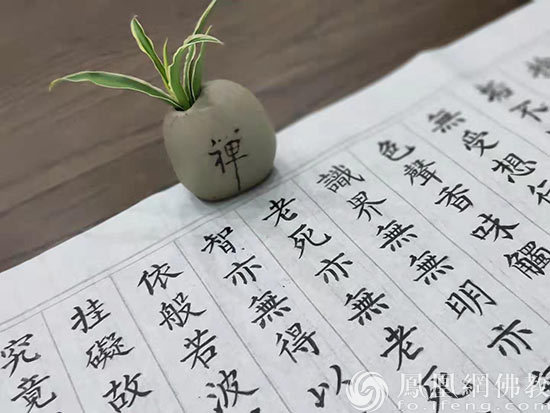 禪
垢不
無受想行
色聲香味觸
識界無無明亦
老死亦無老
智亦無得以
依般若波
挂礙故
究竟
鳳凰網佛教
fo.ifeng.com